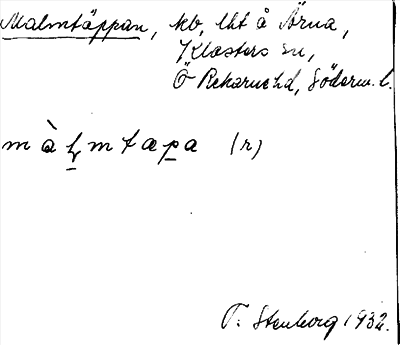 Malmtäppan, kb, lht å Ärna,
Klosters sn,
Ö Rekarne hd, Söderm. l.
màl̠mtap̠a (r)
T. Stenborg 1932.